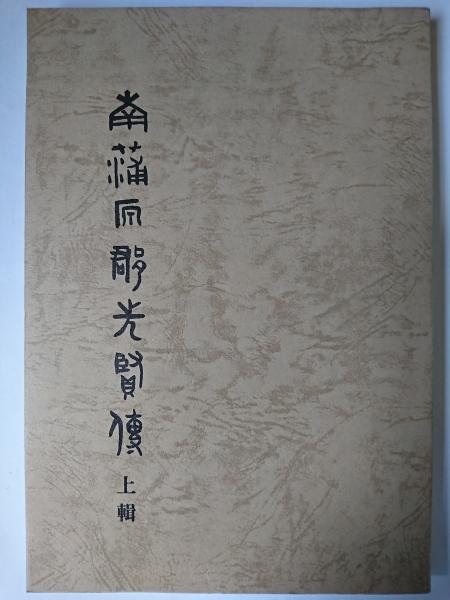 南蒲原郡先賢傳 上輯